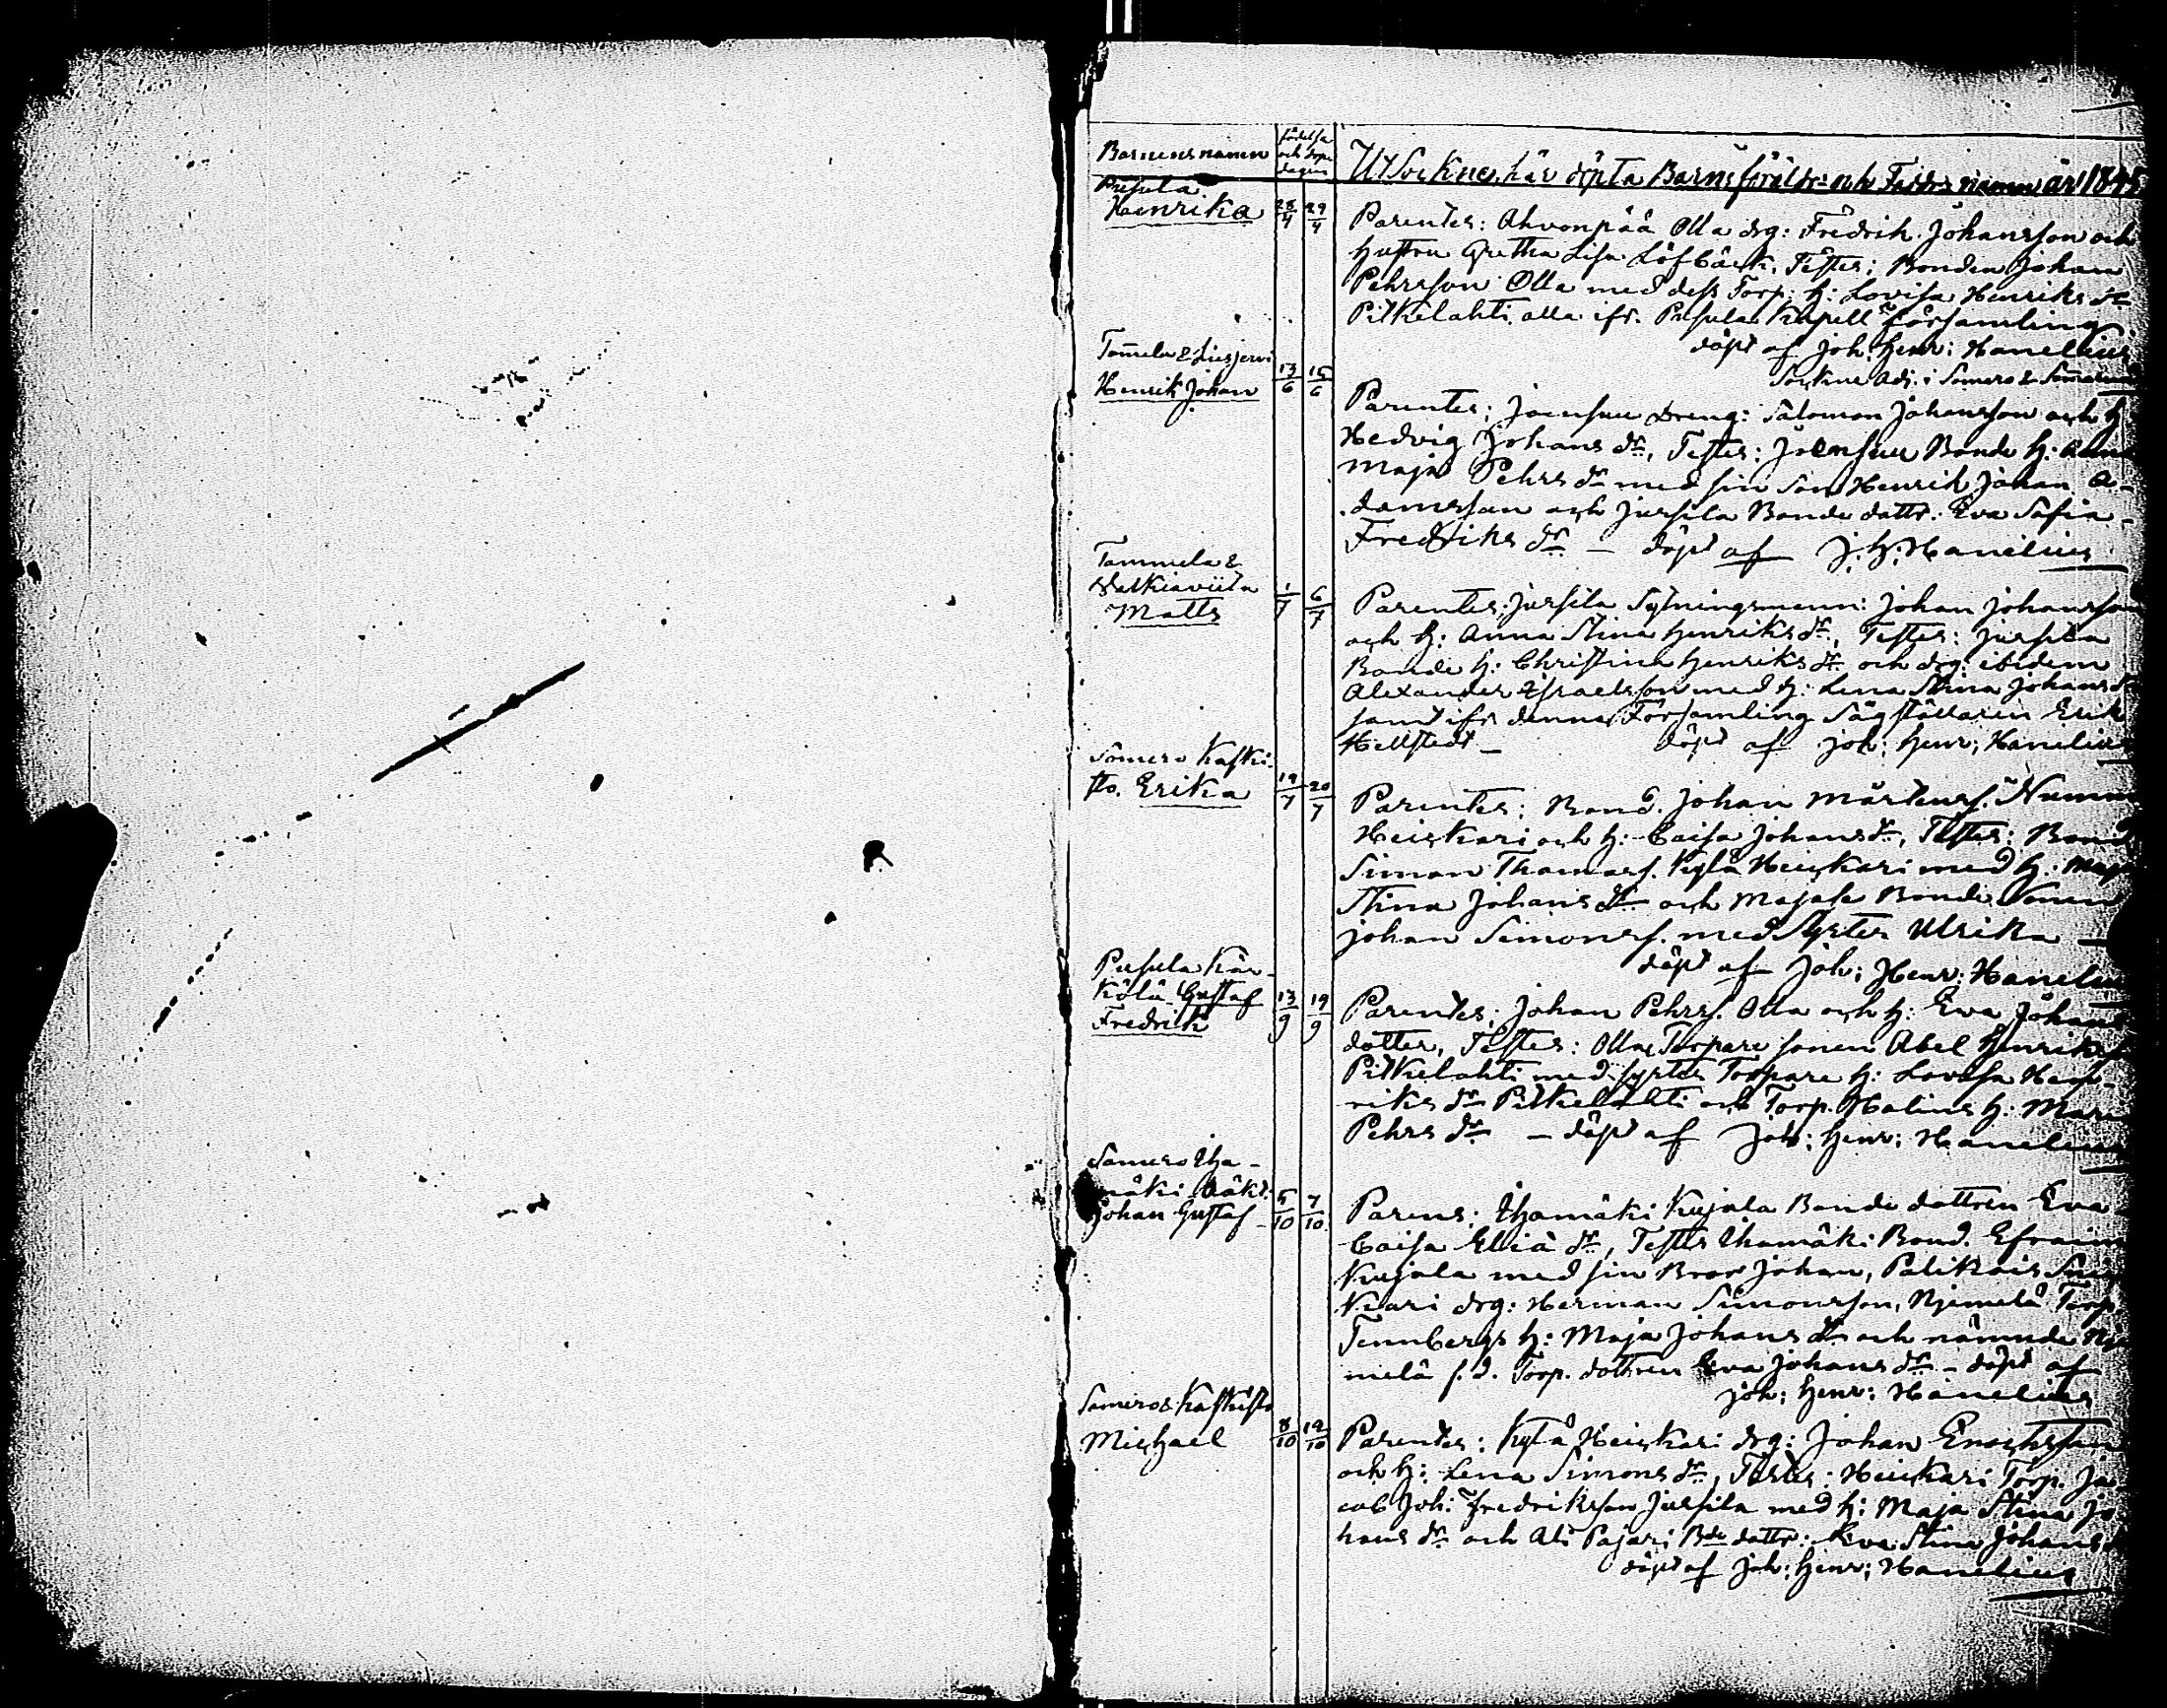 Barnens namn
födelse
och döpe
dagen
Utsockne, här döpta Barns föräldr: och Faddr: namn år 1845
Pusula
Henrika
28/4 29/4
Parentes: Ahvonpää Olla drg: Fredrik Johansson och
hustru Gretha Lisa Löfbäck, Testes; Bonden Johan
Pehrsson Olla med dess Torp: h: Lovisa Henriks dr
Pitkelahti alla ifr. Pusula Kapell församling
döpt af Joh: Henr: Hanelius
Sockne Adj. i Somero & Somerniemi
Tamela & Liesjervi
Henrik Johan
13/6 15/6
Parentes; Joensuu Dreng: Salomon Johansson och h:
Hedvig Johans dr, Testes: Joensuu Bonde h: Anna
Maja Pehrs dr med sin Son Henrik Johan A-
damsson och Jursila Bonde dottr. Eva Sofia
Fredriks dr – döpt af J. H. Hanelius
Tammela &
Matts
1/7 6/7
Parentes; Jursila Sytningsmann: Johan Johansson
och h: Anna Stina Henriks dr, Testes: Jursila
Bonde h: Christina Henriks dr och drg: ibidem
Alexander Israelsson med h: Lena Stina Johans dr
samt ifr denna Församling Sågställaren Erik
Hellstedt – döpt af Joh: Henr; Hanelius
Somero Kaski-
sto. Erika
19/7 20/7
Parentes; Bond. Johan Mårtenss.
Heickari och h: Caisa Johans dr, Testes; Bond
Simon Thomass. Kylä Heickari med h: Maja
Stina Johans dr och Bonde Sonen
Johan Simonss. med Syster Ulrika –
döpt af Joh; Henr: Hanelius
Pusula Kär-
kölä Gustaf
Fredrik
13/9 19/9
Parentes; Johan Pehrss. Olla och h: Eva Johans
dotter, Testes: Olla Torpare sonen Abel Henrikss
Pitkelahti med syster Torpare h: Lovisa Hen-
riks dr Pitkelahti och Torp. Halins h: Maria
Pehrs dr – döpt af Joh: Henr; Hanelius
Somero Iha-
mäki oäkt.
Johan Gustaf
5/10 7/10
Parens; Ihamäki Kujala Bonde dottren Eva
Caisa Eliä dr, Testes Ihamäki Bond. Efraim
Kujala med sin Bror Johan, Palikais
drg: Herman Simonsson, Njemelä Torp.
Tennbergs h: Maja Johans dr och nämnde Nje-
melä f. d. Torp. dottren Eva Johans dr – döpt af
Joh; Henr: Hanelius
Somero & Kaskisto
Michael
8/10 12/10
Parentes; Kylä Heickari drg: Johan Enochsson
och h: Lena Simons dr, Testes: Heickari Torp. Ja-
cob Joh: Fredriksson Jursila med h: Maja Stina Jo-
hans dr och Ali Pajari Bde dottr: Eva Stina Johans
döpt af Joh: Henr; Hanelius